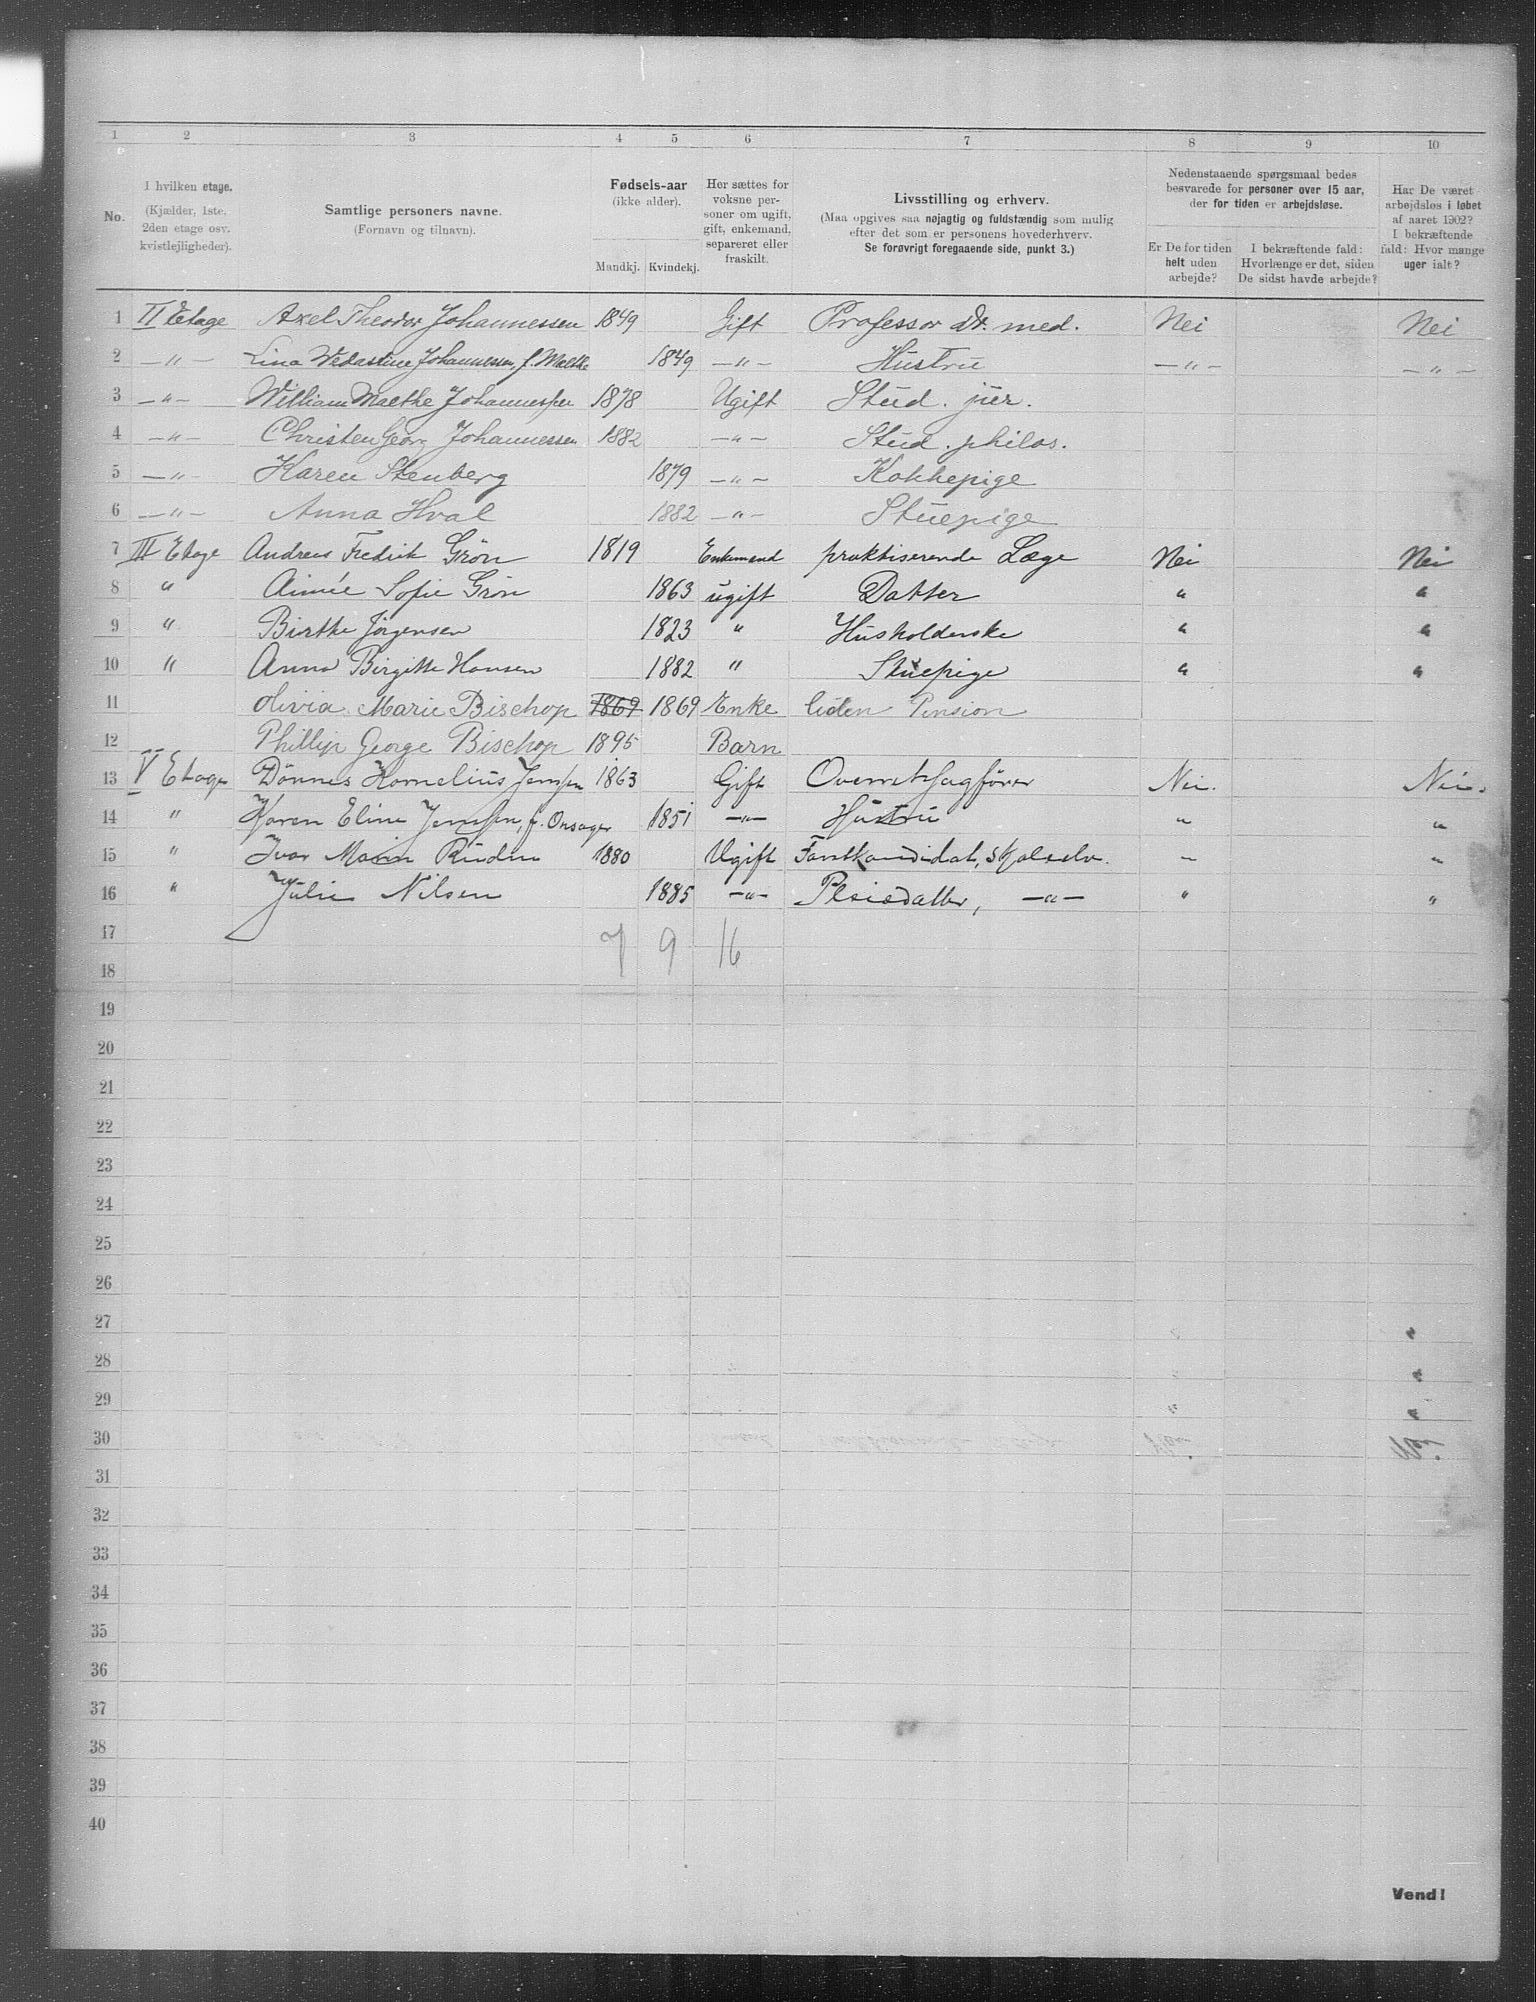 1 2 3 4 5 6 7 8 9 10
No.
I hvilken etage.
(Kjælder, 1ste, 2den etage osv. kvistlejligheder).
Samtlige personers navne.
(Fornavn og tilnavn).
Fødsels-aar
(ikke alder).
Mandkj. Kvindekj.
Her sættes for voksne personer om ugift, gift, enkemand, separeret eller fraskilt.
Livsstilling og erhverv.
(Maa opgives saa nøjagtig og fuldstændig som mulig efter det som er personens hovederhverv.
Se forøvrigt foregaaende side, punkt 3.)
Nedenstaaende spørgsmaal bedes besvarede for personer over 15 aar, der for tiden er arbejdsløse.
Er De for tiden helt uden arbejde?
I bekræftende fald: Hvorlænge er det, siden De sidst havde arbejde?
Har De været arbejdsløs i løbet af aaret 1902? I bekræftende fald: Hvor mange uger ialt?
1 II Etage Axel Theodor Johannessen 1849 Gift Professor Dr. med. Nei Nei
2 —"— Lina Vedastine Johannessen, f. Malthe 1849 —"— Hustru —"— —"—
3 —"— William Malthe Johannessen 1878 Ugift Stud. jur.
4 —"— Christen Georg Johannessen 1882 —"— Stud. philos.
5 —"— Karen Stenberg 1879 —"— Kokkepige
6 —"— Anna Hval 1882 —"— Stuepige
7 III Etage Andreas Fredrik Grön 1819 Enkemand praktiserende Læge Nei Nei
8 " Aimée Sofie Grön 1863 ugift Datter " "
9 " Birthe Jörgensen 1823 " Husholderske " "
10 " Anna Birgitte Hansen 1882 " Stuepige " "
11 Olivia Marie Bischop 1869 1869 Enke liden Pension
12 Phillip George Bischop 1895 Barn
13 V Etage Dönnes Kornelius Jenssen 1863 Gift Overretssagförer Nei. Nei.
14 " Karen Eline Jenssen, f. Onsager 1851 —"— Hustru " "
15 " Ivar Ruden 1880 Ugift " "
16 " Julie Nilsen 1885 —"— Pleiedatter, —"— " "
17 7 9 16
18
19
20
21
22
23
24
25
26
27
28
29
30
31
32
33
34
35
36
37
38
39
40
Vend!